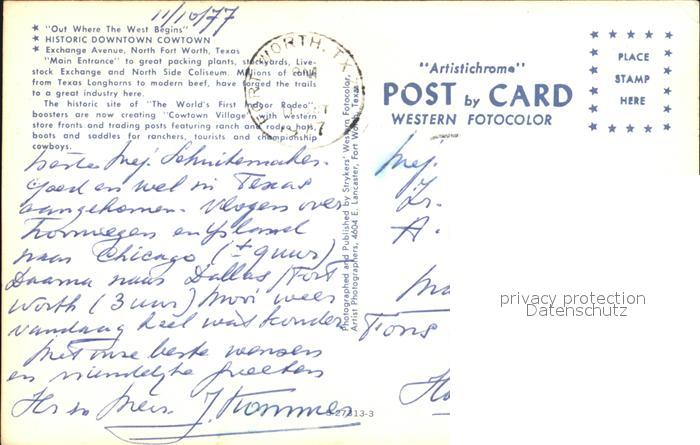 11/10/77
★ "Out Where The West Begins"
★ HISTORIC DOWNTOWN COWTOWN
★ Exchange Avenue, North Fort Worth, Texas
"Main Entrance" to great packing plants, stockyards, Live-
stock Exchange and North Side Coliseum. Millions of cattle
from Texas Longhorns to modern beef, have forded the trails
to a great industry here.
The historic site of "The World's First Indoor Rodeo",
boosters are now creating "Cowtown Village" with Western
store fronts and trading posts featuring ranch and rodeo hats,
boots and saddles for ranchers, tourists and championship
cowboys.
FORT WORTH, TX
PM
"Artistichrome"
POST by CARD
WESTERN FOTOCOLOR
PLACE
STAMP
HERE
Photographed and Published by Strykers' Western Fotocolor,
Artist Photographers, 4604 E. Lancaster, Fort Worth, Texas
beste Mej. Schuitemaker.
Goed en wel in Texas
aangekomen. Vlogen over
Noorwegen en IJsland
naar Chicago (± 9 uur)
Daarna naar Dallas/Fort
Worth (3 uur) Mooi weer
vandaag heel wat
Met onze beste wensen
en vriendelijke groeten
Hr en Mevr. J. Kommer
Mej.
A.
S-27813-3
privacy protection
Datenschutz